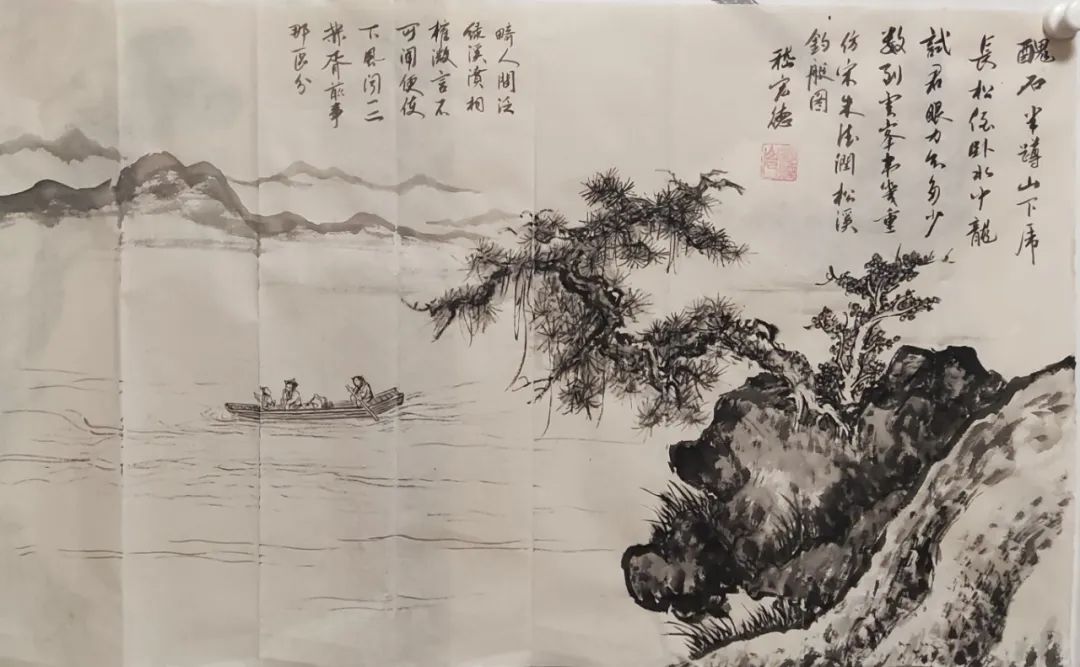 醜石半蹲山下虎
長松倒卧水中龍
試君眼力知多少
數到雲峯第幾重
仿宋朱德潤松溪
釣艇图
嵇宏德
畸人閒泛
緑溪濱相
榷激言不
可聞便使
下風聞二
齊前事
那區分